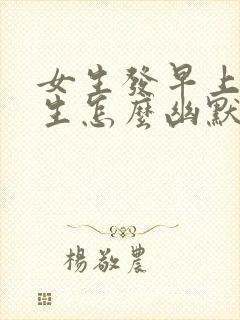 女生發早上
生怎麼幽默
楊敬農